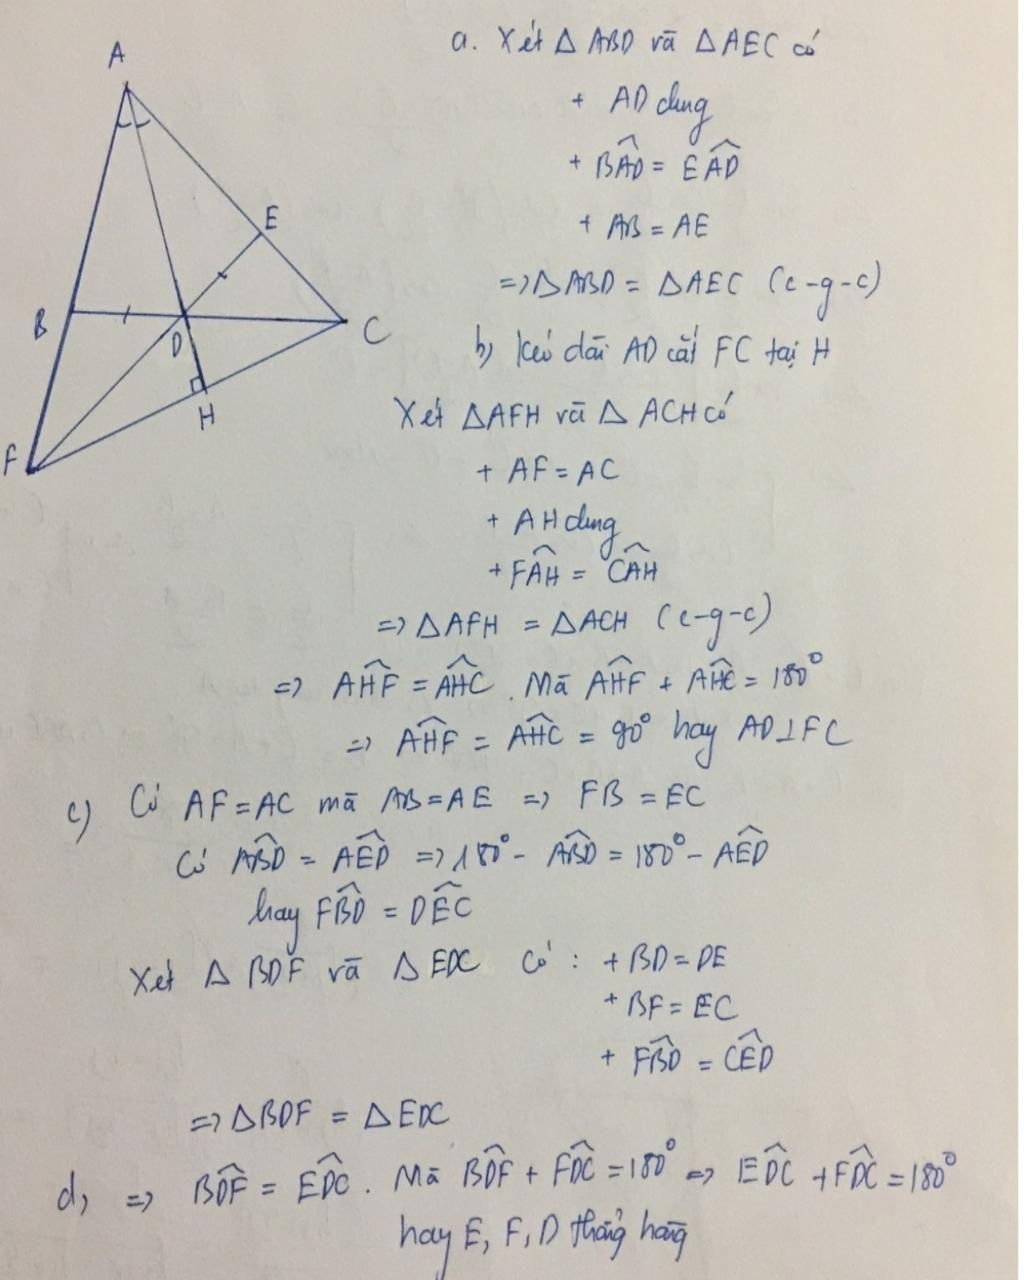 A
E
B
D
C
H
F
a. Xét △ ABD và △AEC có
+ AD chung
+ BÂD = EÂD
+ AB = AE
=> △ABD = △AEC (c-g-c)
b, Kéo dài AD cắt FC tại H
Xét △AFH và △ ACH có
+ AF = AC
+ AH chung
+ FÂH = CÂH
=> △AFH = △ACH (c-g-c)
=> AĤF = AĤC. Mà AĤF + AĤC = 180°
=> AĤF = AĤC = 90° hay AD⊥FC
c) Có AF = AC mà AB = AE => FB = EC
Có AB̂D = AÊD => 180° - AB̂D = 180° - AÊD
hay FB̂D = DÊC
Xét △ BDF và △ EDC có : + BD = DE
+ BF = EC
+ FB̂D = CÊD
=> △BDF = △EDC
d, => BD̂F = ED̂C. Mà BD̂F + FD̂C = 180° => ED̂C + FD̂C = 180°
hay E, F, D thẳng hàng